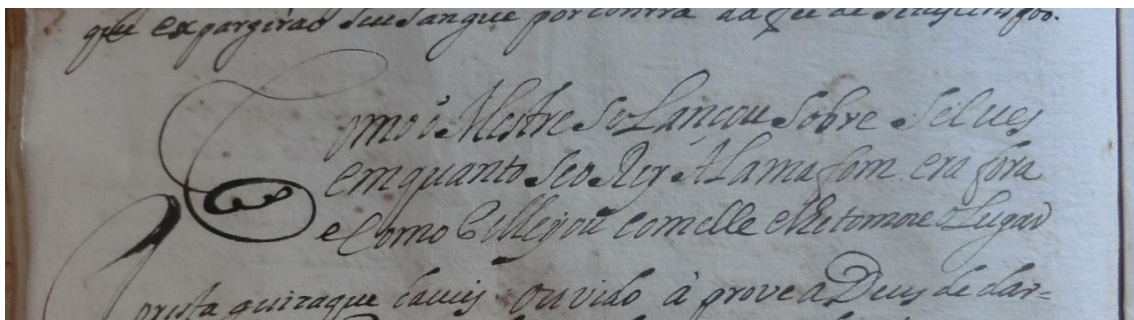 que expargirao seu sangue por contra da fee de
Como o Mestre se Lançou sobre Silues
emquanto seo Rey Alamafom era fora
e Como Pellejou com elle e lhe tomou o Lugar
Desta guiza que haueis ouvido à prove a Deus de dar=